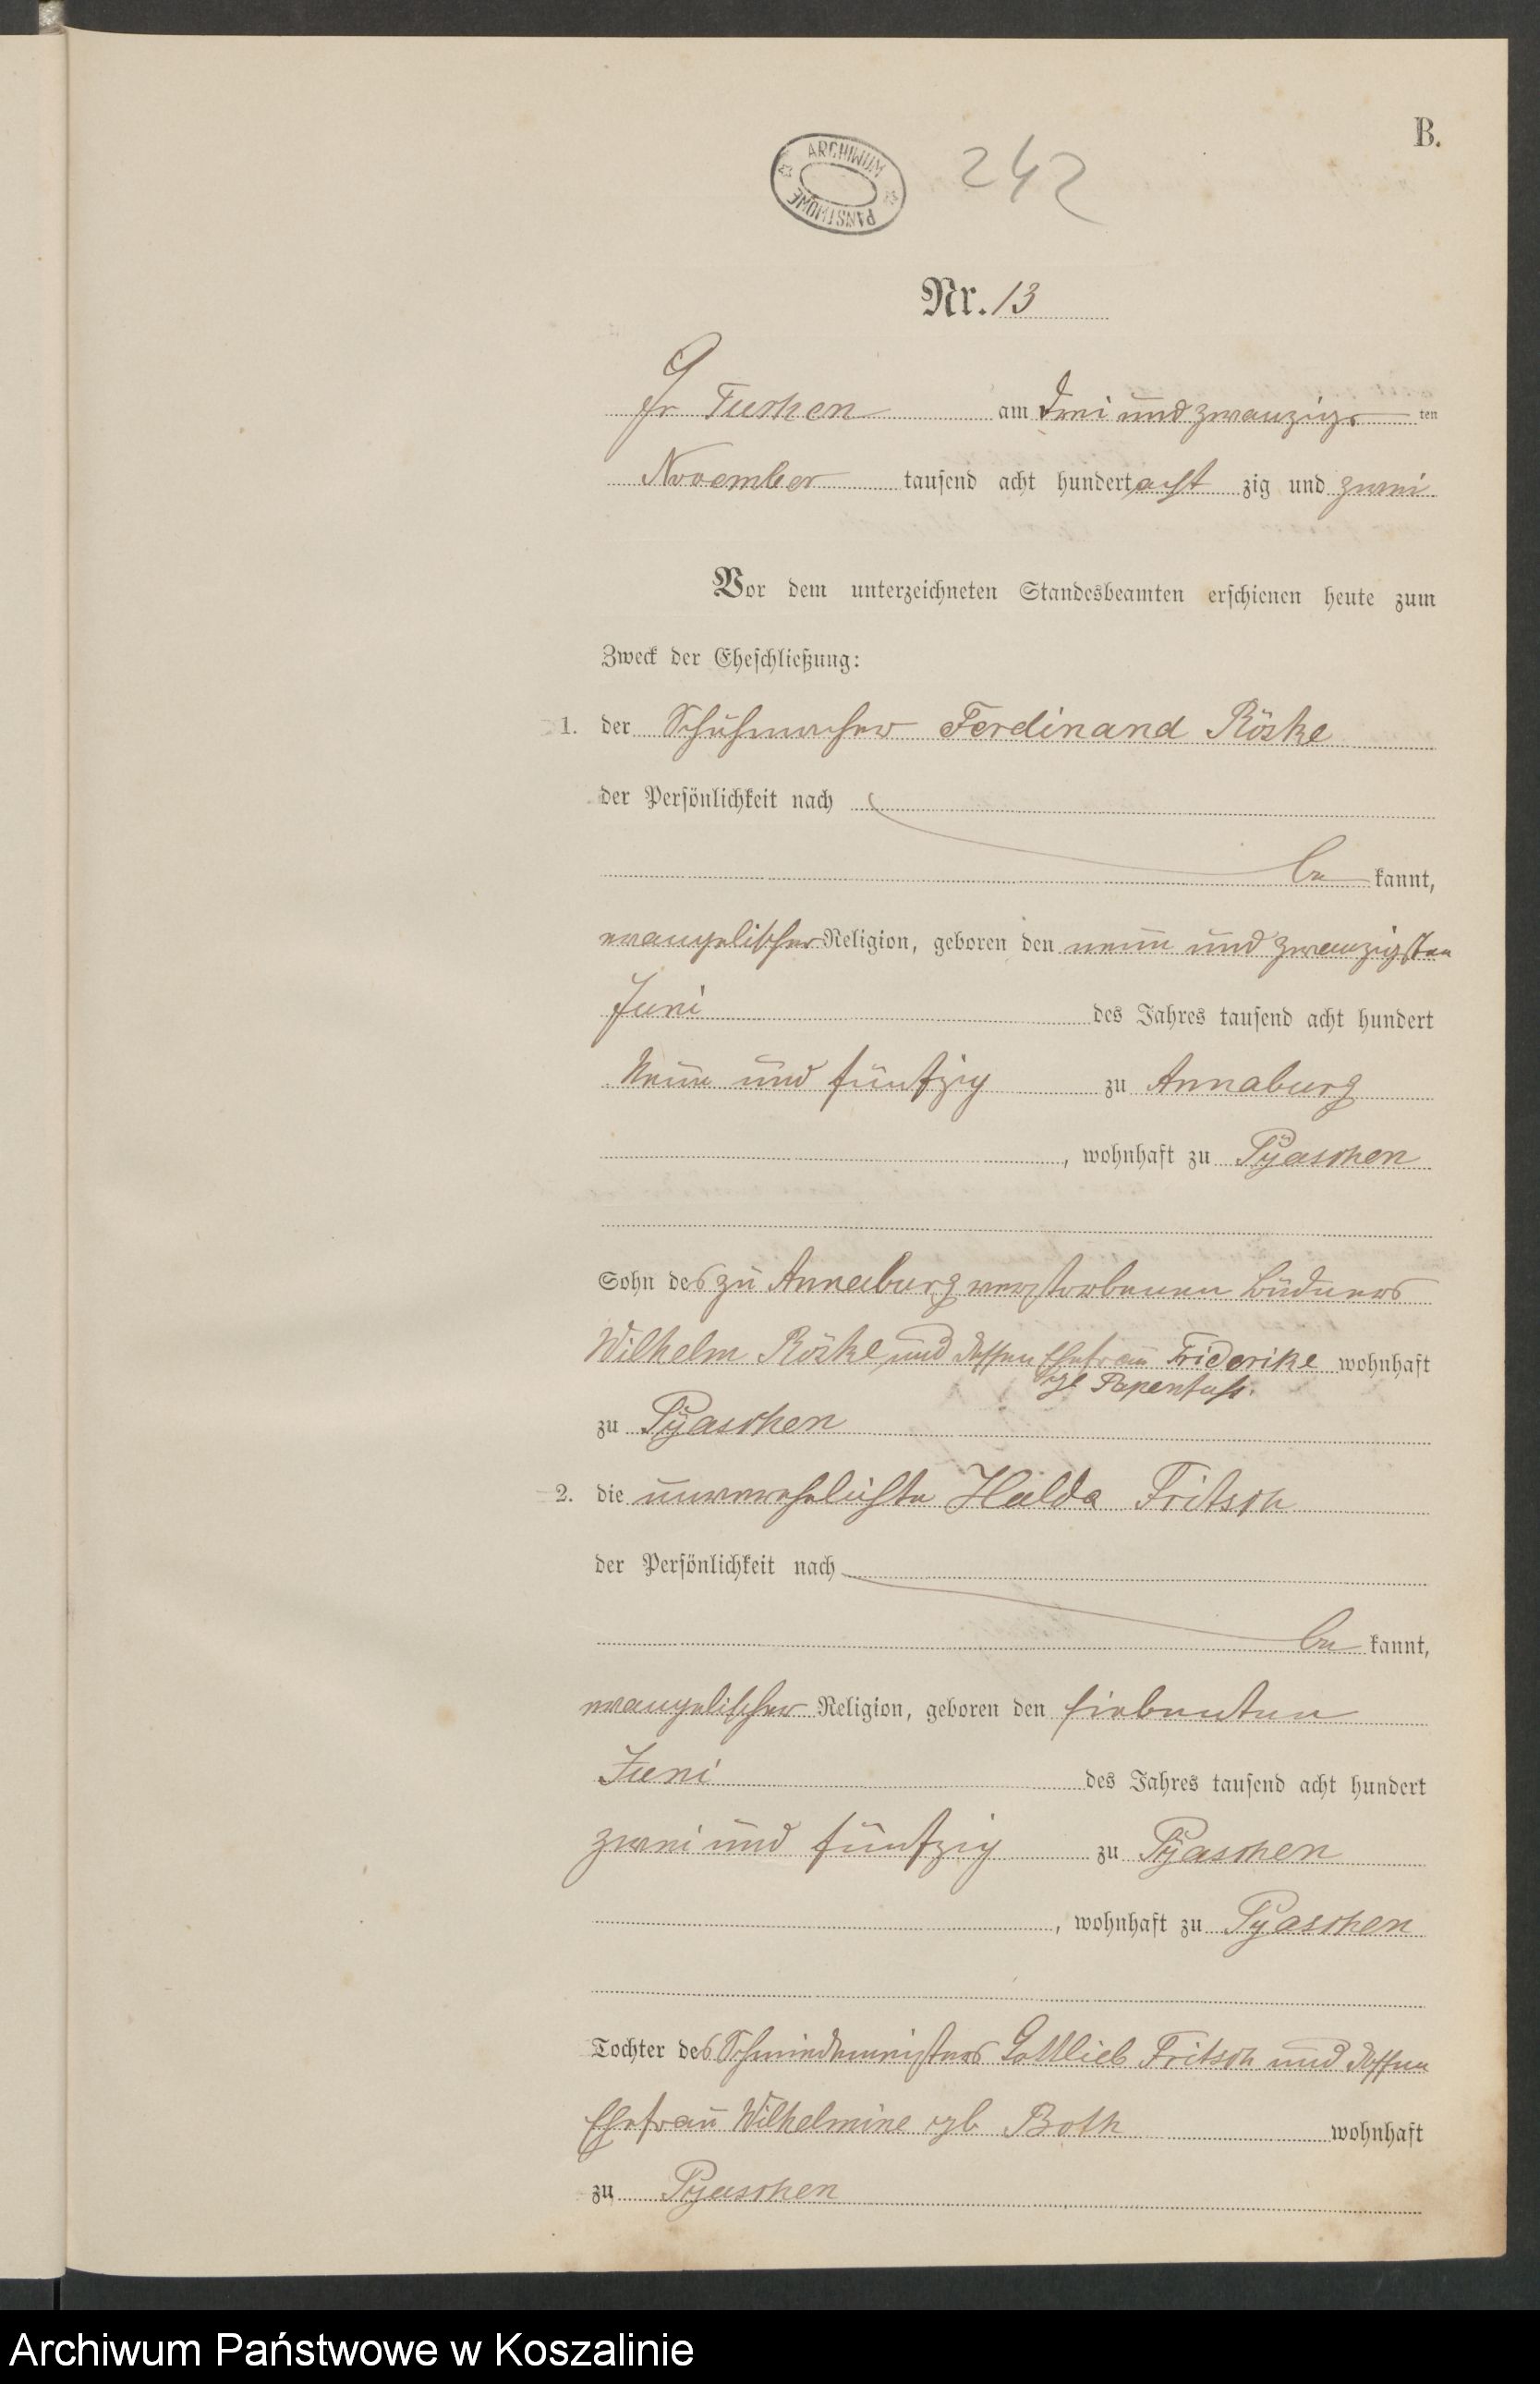 B.
ARCHIWUM PAŃSTWOWE
242
Nr. 13
Gr Tuchen am Drei und zwanzigs ten
November tausend acht hundert acht zig und zwei
Vor dem unterzeichneten Standesbeamten erschienen heute zum
Zweck der Eheschließung:
1. der Schuhmacher Ferdinand Röske
der Persönlichkeit nach
be kannt,
evangelischer Religion, geboren den neun und zwanzigsten
Juni des Jahres tausend acht hundert
Neun und fünfzig zu Annaburg
, wohnhaft zu Pyaschen
Sohn des zu Annaburg verstorbenen Büdners
Wilhelm Röske und dessen Ehefrau Friderike wohnhaft
geb Papenfuß.
zu Pyaschen
2. die unverehelichte Hulda Fritsch
der Persönlichkeit nach
be kannt,
evangelischer Religion, geboren den siebenten
Juni des Jahres tausend acht hundert
zwei und fünfzig zu Pyaschen
, wohnhaft zu Pyaschen
Tochter des Schmiedemeisters Gottlieb Fritsch und dessen
Ehefrau Wilhelmine geb Both wohnhaft
zu Pyaschen
Archiwum Państwowe w Koszalinie